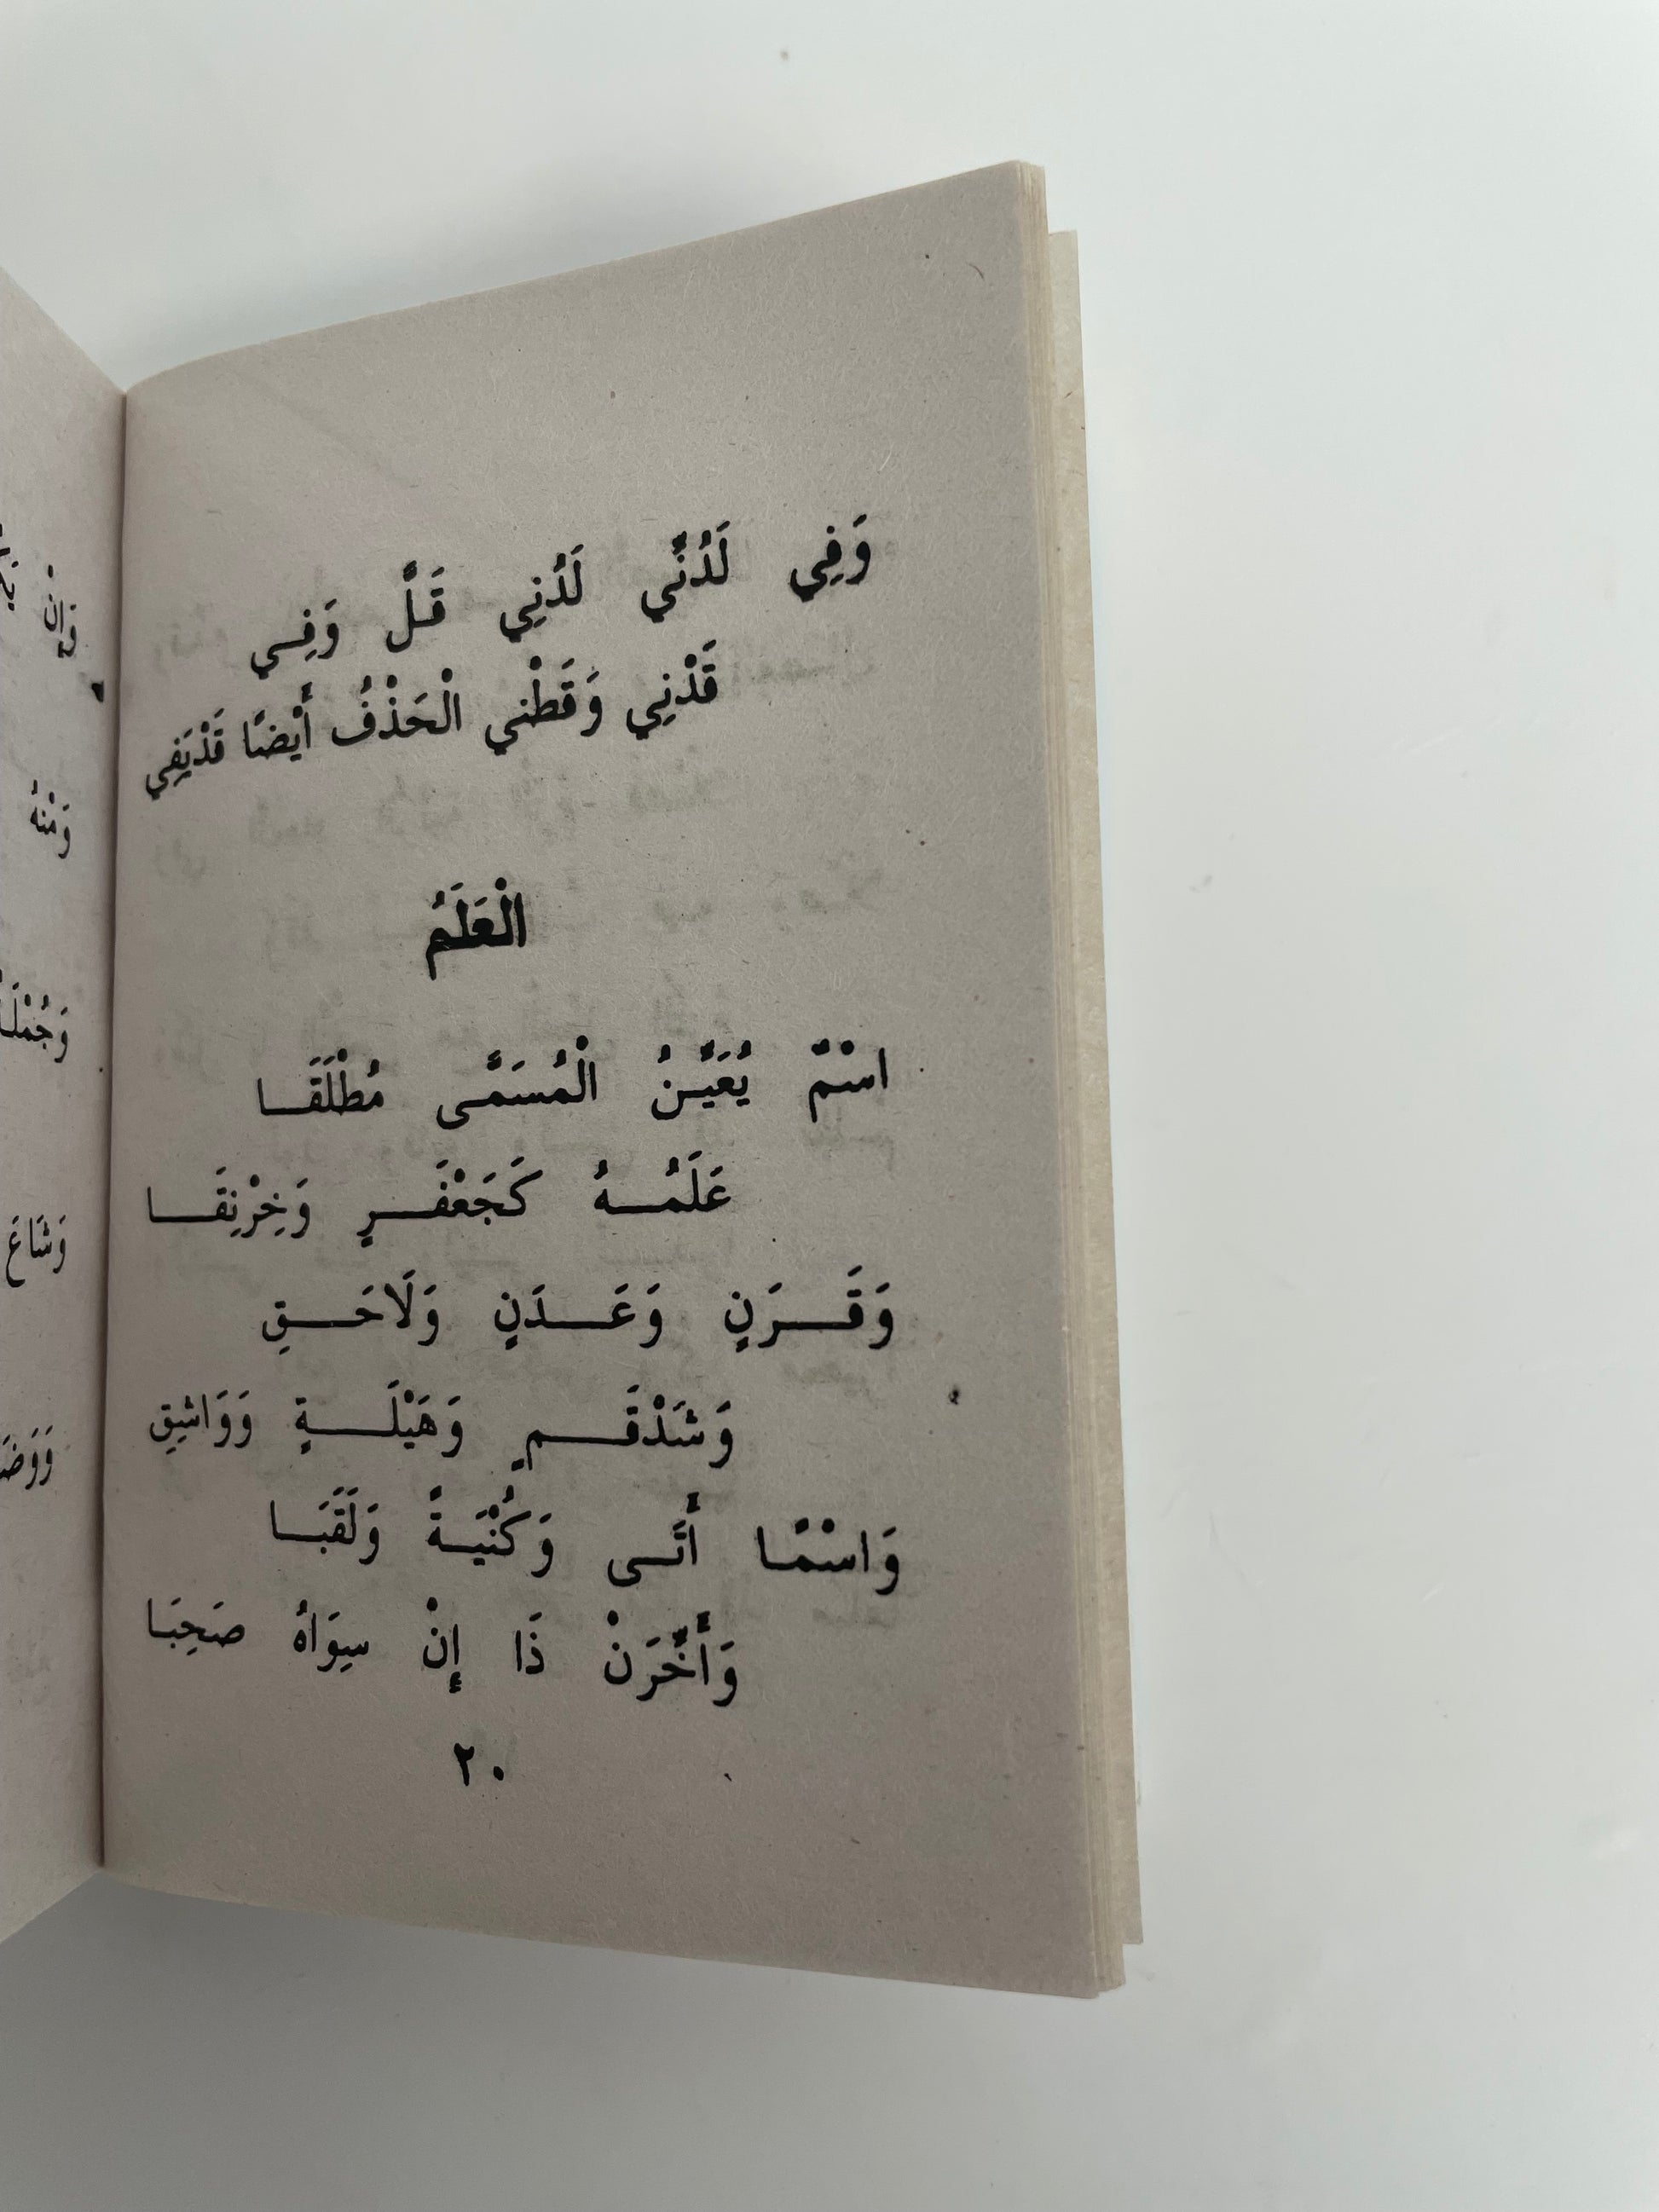 وَفِي لَدُنِّي لَدُنِي قَلَّ وَفِي
قَدْنِي وَقَطْنِي الْحَذْفُ أَيْضًا قَدْ يَفِي
الْعَلَمُ
اسْمٌ يُعَيِّنُ الْمُسَمَّى مُطْلَقَا
عَلَمُهُ كَجَعْفَرٍ وَخِرْنِقَا
وَقَرَنٍ وَعَدَنٍ وَلَاحِقِ
وَشَذْقَمٍ وَهَيْلَةٍ وَوَاشِقِ
وَاسْمًا أَتَى وَكُنْيَةً وَلَقَبَا
وَأَخِّرَنْ ذَا إِنْ سِوَاهُ صَحِبَا
٢٠
وَإِنْ
وَمِنْهُ
وَشَاعَ